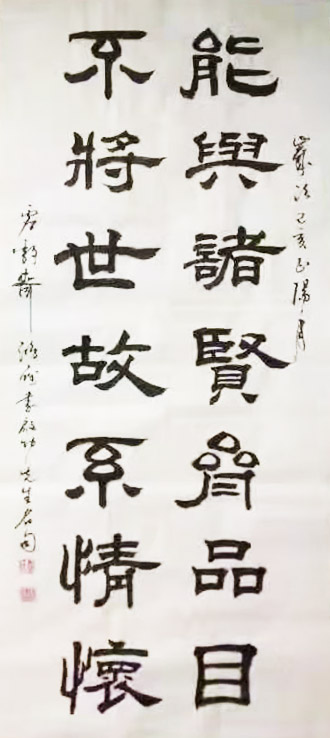 歲次己亥正陽月
能與諸賢齊品目
不將世故系情懷
齋書啟功先生名句